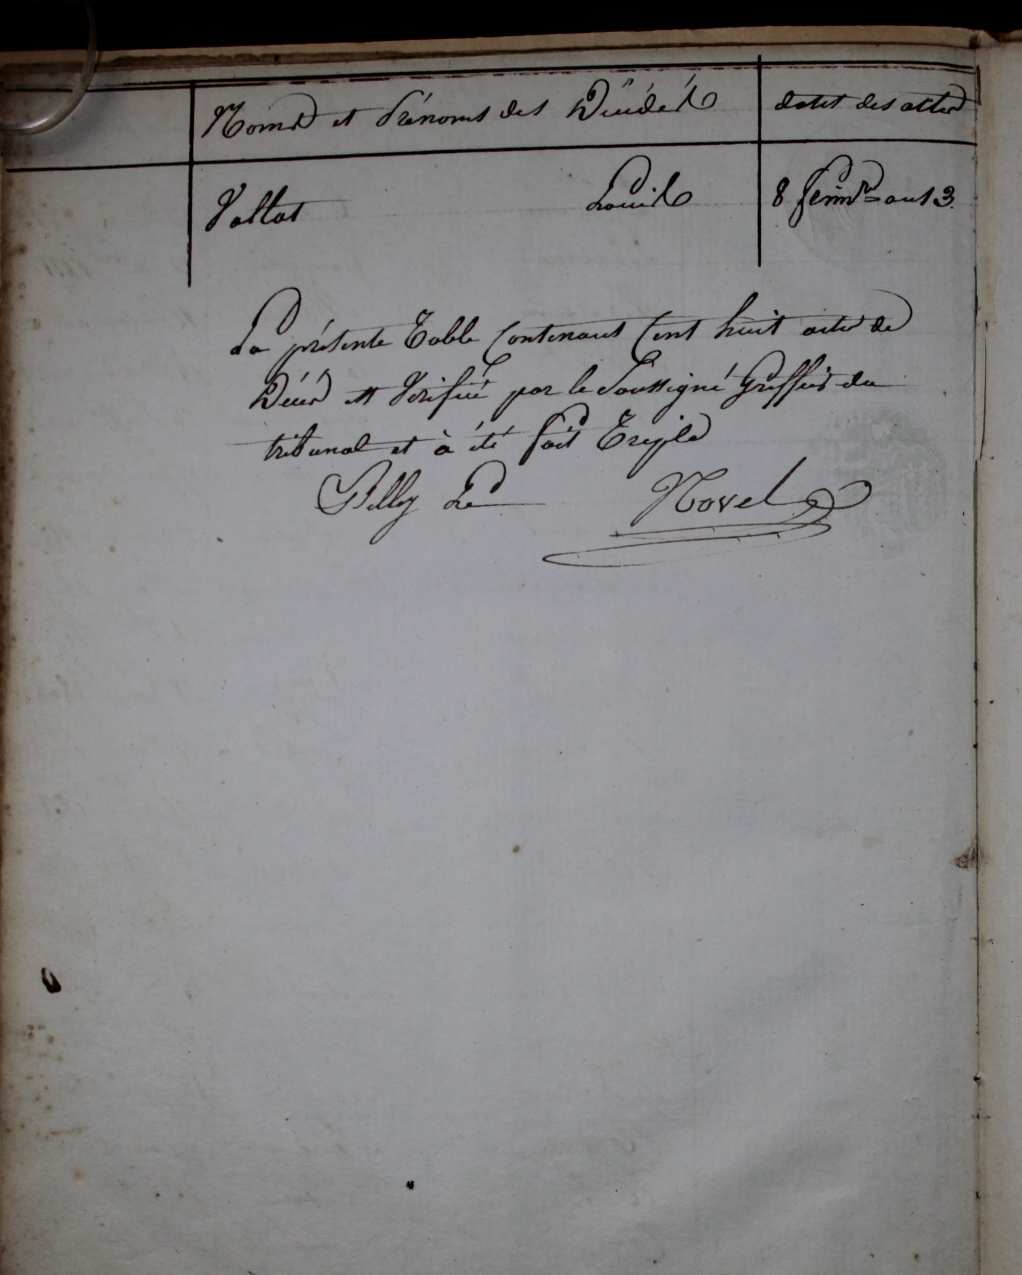 Noms et Prénoms des Décédés dates des actes
Valtat Louis 8 frim.re an 13
La présente Table Contenant Cent huit actes de
Décès est Vérifiée par le Soussigné Greffier du
tribunal et à été fait Triple
Novel